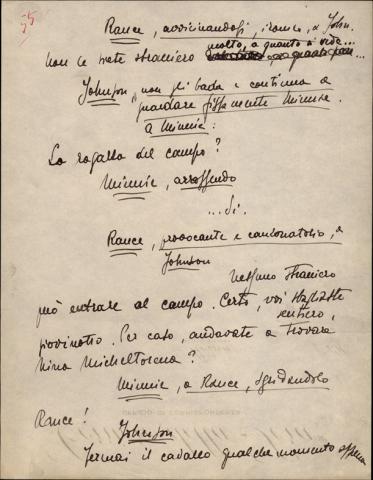 55
Rance, avvicinandosi, ironico, a John.
non le siete straniero molto, a quanto si vede...
Johnson non gli bada e continua a
guardare fissamente Minnie.
a Minnie:
La ragazza del campo?
Minnie, arrossendo
...Sì.
Rance, provocante e canzonatorio, a
Johnson
Nessuno straniero
può entrare al campo. Certo, voi sbagliaste
sentiero,
giovinotto. Per caso, andavate a trovare
Nina Micheltorena?
Minnie, a Rance, sgridandolo
Rance!
Johnson
Fermai il cavallo qualche momento appena